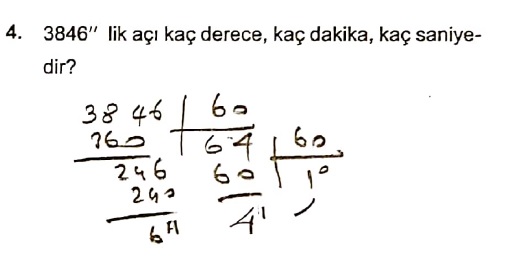 4. 3846″ lik açı kaç derece, kaç dakika, kaç saniye-
dir?
3846 | 60
360 64 | 60
246 60 1°
240 4'
6"